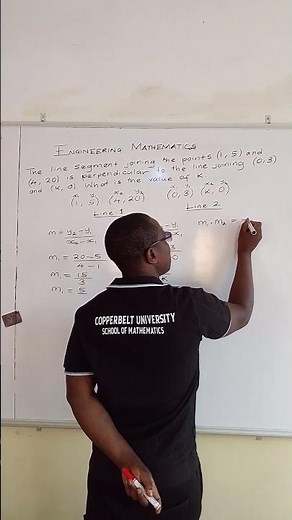 ENGINEERING MATHEMATICS
The line segment joining the points (1, 5) and
(4, 20) is perpendicular to the line joining (0, 3)
and (k, 0). What is the value of k
x₁ y₁ x₂ y₂ x₁ y₁ x₂ y₂
(1, 5) (4, 20) (0, 3) (k, 0)
Line 1 Line 2
m = y₂ - y₁ - y₁
x₂ - x₁ - x₁
m₁ . m₂ =
m₁ = 20 - 5
4 - 1
m₁ = 15
3
m₁ = 5
COPPERBELT UNIVERSITY
SCHOOL OF MATHEMATICS